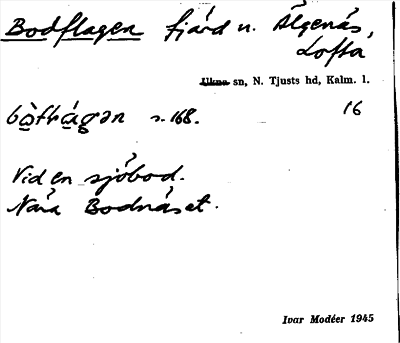 Bodflagen fjärd n. Älgenäs,
Lofta
Ukna sn, N. Tjusts hd, Kalm. l.
s. 168. 16
Vid en sjöbod.
Nära Bodnäset.
Ivar Modéer 1945